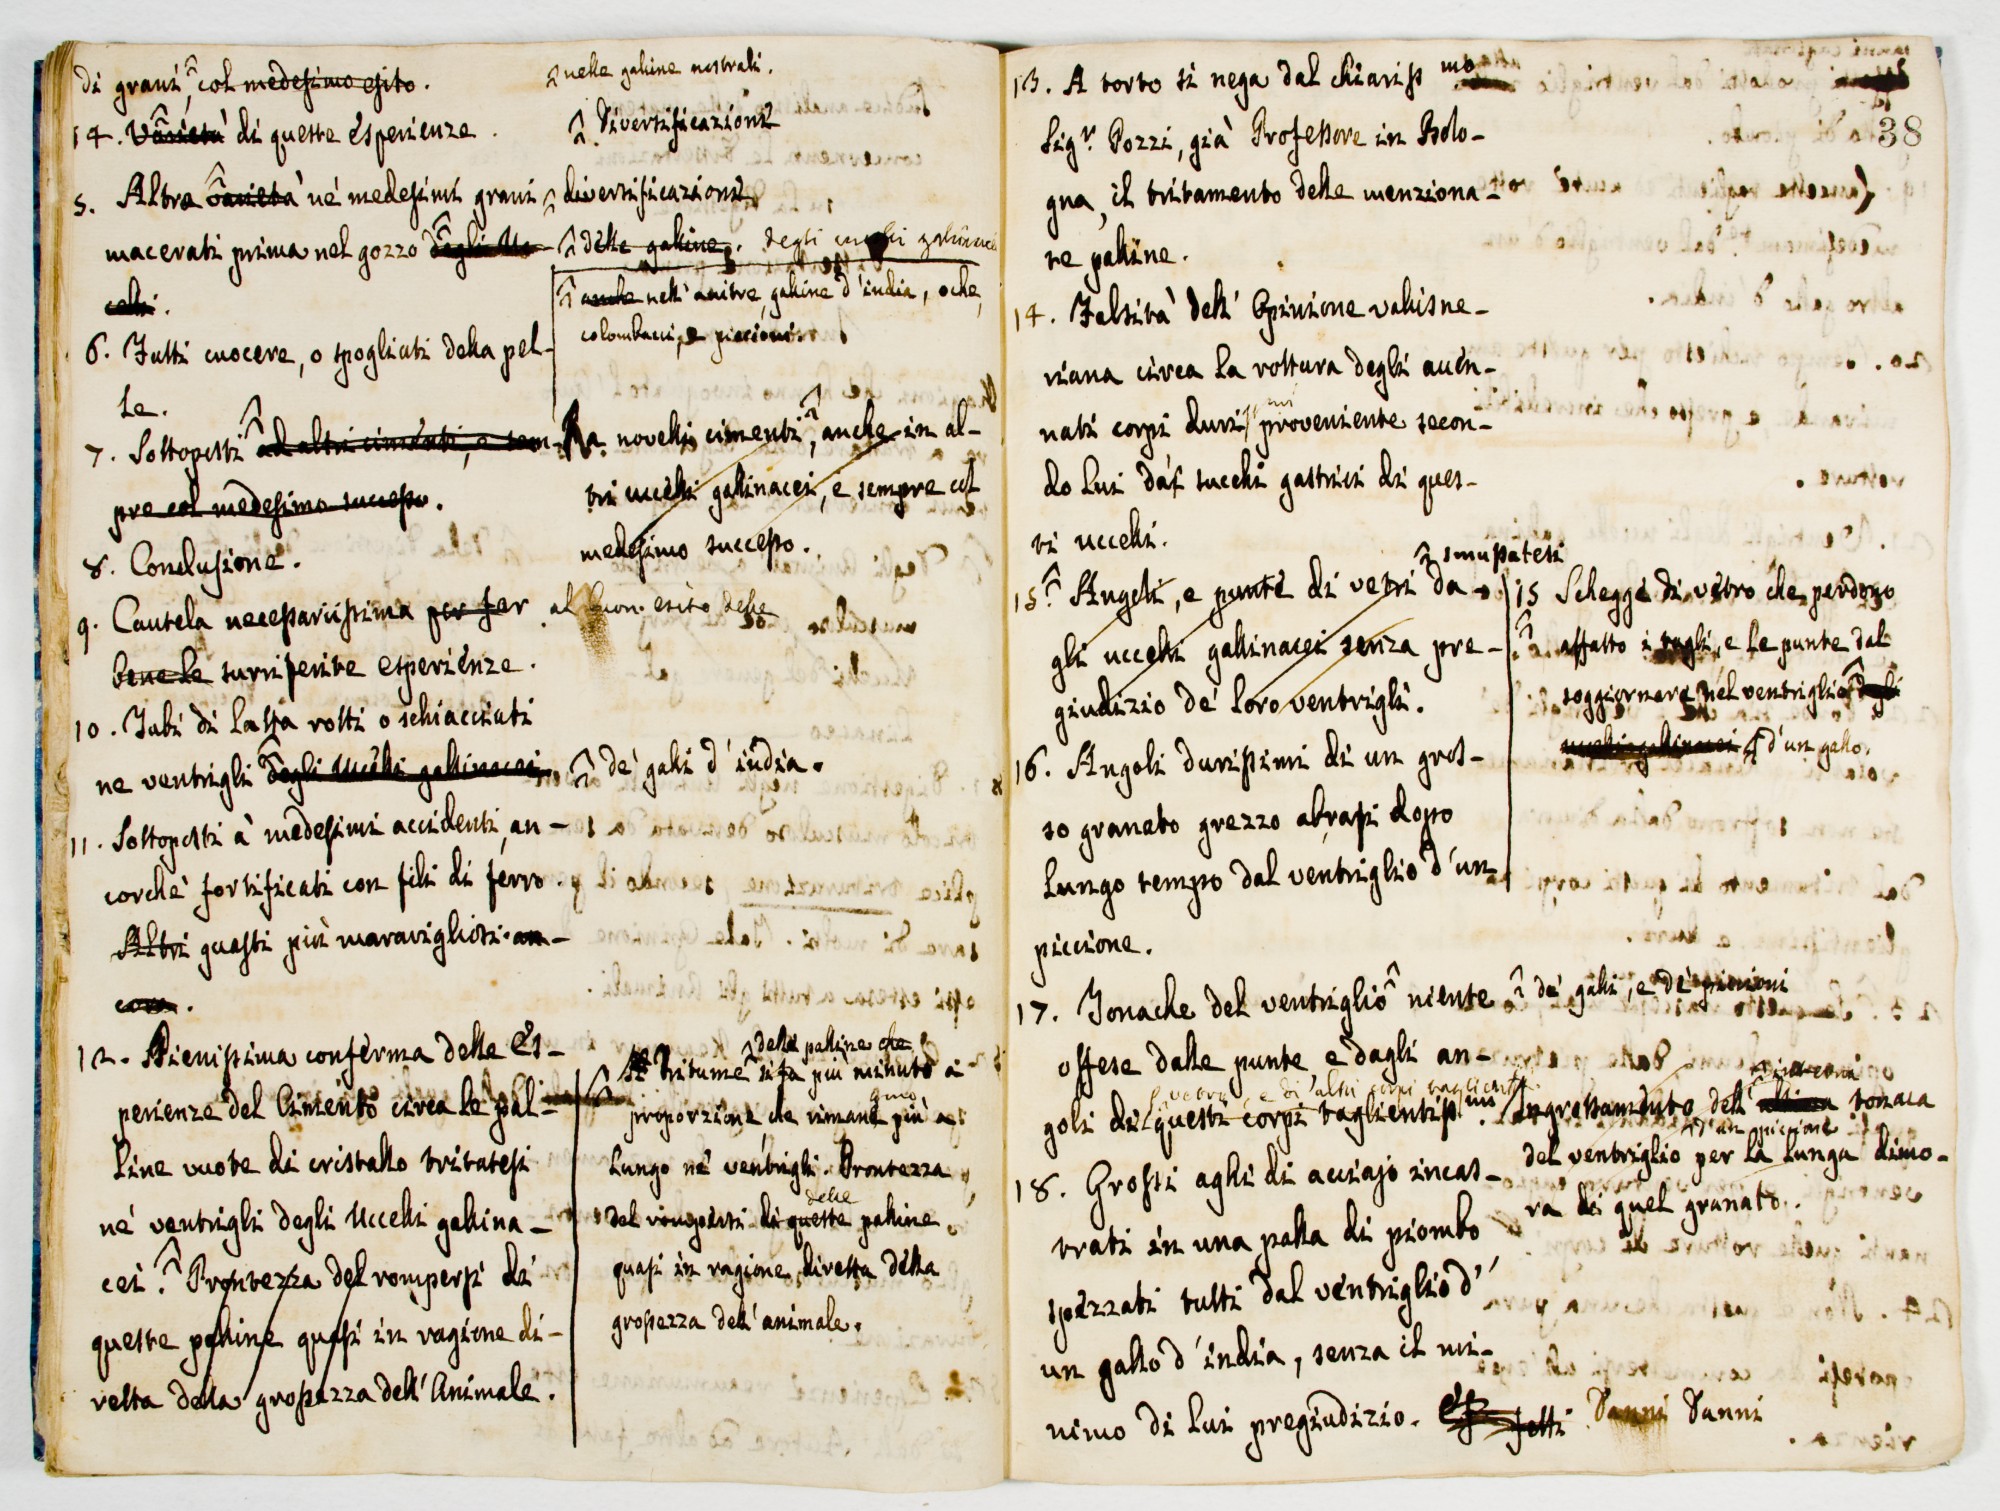 di grani, col medesimo esito.
nelle galline nostrali.
14. Varietà di queste esperienze.
Diversificazioni
5. Altre varietà né medesimi grani
diversificazioni
macerati prima nel gozzo degli Uc-
delle galline. degli uccelli gallinacei
celli.
anche nell' anitre, galline d'india, oche,
colombacci, e piccioni.
6. Fatti cuocere, o spogliati della pel-
le.
7. Sottoposti ad altri cimenti, e sem-
pre col medesimo successo.
a novelli cimenti, anche in al-
tri uccelli gallinacei, e sempre col
medesimo successo.
8. Conclusione.
9. Cautela necessariissima per far
al buon esito delle
bene le surriferite esperienze.
10. Tubi di latta rotti o schiacciati
ne ventrigli degli Uccelli gallinacei
de' galli d'india.
11. Sottoposti a' medesimi accidenti, an-
corchè fortificati con fili di ferro.
Altri guasti più maravigliosi an-
cora.
12. Pienissima conferma delle Es-
perienze del Cimento circa le pal-
line vuote di cristallo tritatesi
né ventrigli degli Uccelli gallina-
cei. Prontezza del rompersi di
queste palline quasi in ragione di-
retta della grossezza dell' Animale.
delle palline che
Tritume si fa più minuto a
proporzione che rimane più a
lungo né ventrigli. Prontezza
delle
del rompersi di queste palline
quasi in ragione diretta della
grossezza dell' animale.
38
13. A torto si nega dal chiariss mo
Sigr. Pozzi, già Professore in Bolo-
gna, il tritamento delle menziona-
te palline.
14. Falsità dell' Opinione vallisne-
riana circa la rottura degli accen-
nati corpi duri proveniente secon-
do lui da' succhi gastrici di ques-
ti uccelli.
smussatesi
15. Angoli, e punte di vetri da-
gli uccelli gallinacei senza pre-
giudizio de' loro ventrigli.
15 Schegge di vetro che perdono
affatto i tagli, e le punte dal
soggiornare nel ventriglio degli
uccelli gallinacei d'un gallo.
16. Angoli durissimi di un gros-
so granato grezzo abrasi dopo
lungo tempo dal ventriglio d'un
piccione.
17. Tonache del ventriglio niente
de' galli, e de' piccioni
offese dalle punte e dagli an-
vetro, e di altri corpi taglienti
goli di questi corpi taglientiss mi.
Ingrossamento dell' ultima tonaca
d'un piccione
del ventriglio per la lunga dimo-
ra di quel granato.
18. Grossi aghi di acciajo incas-
trati in una palla di piombo
spezzati tutti dal ventriglio d'
un gallo d'india, senza il mi-
nimo di lui pregiudizio. Danni Danni